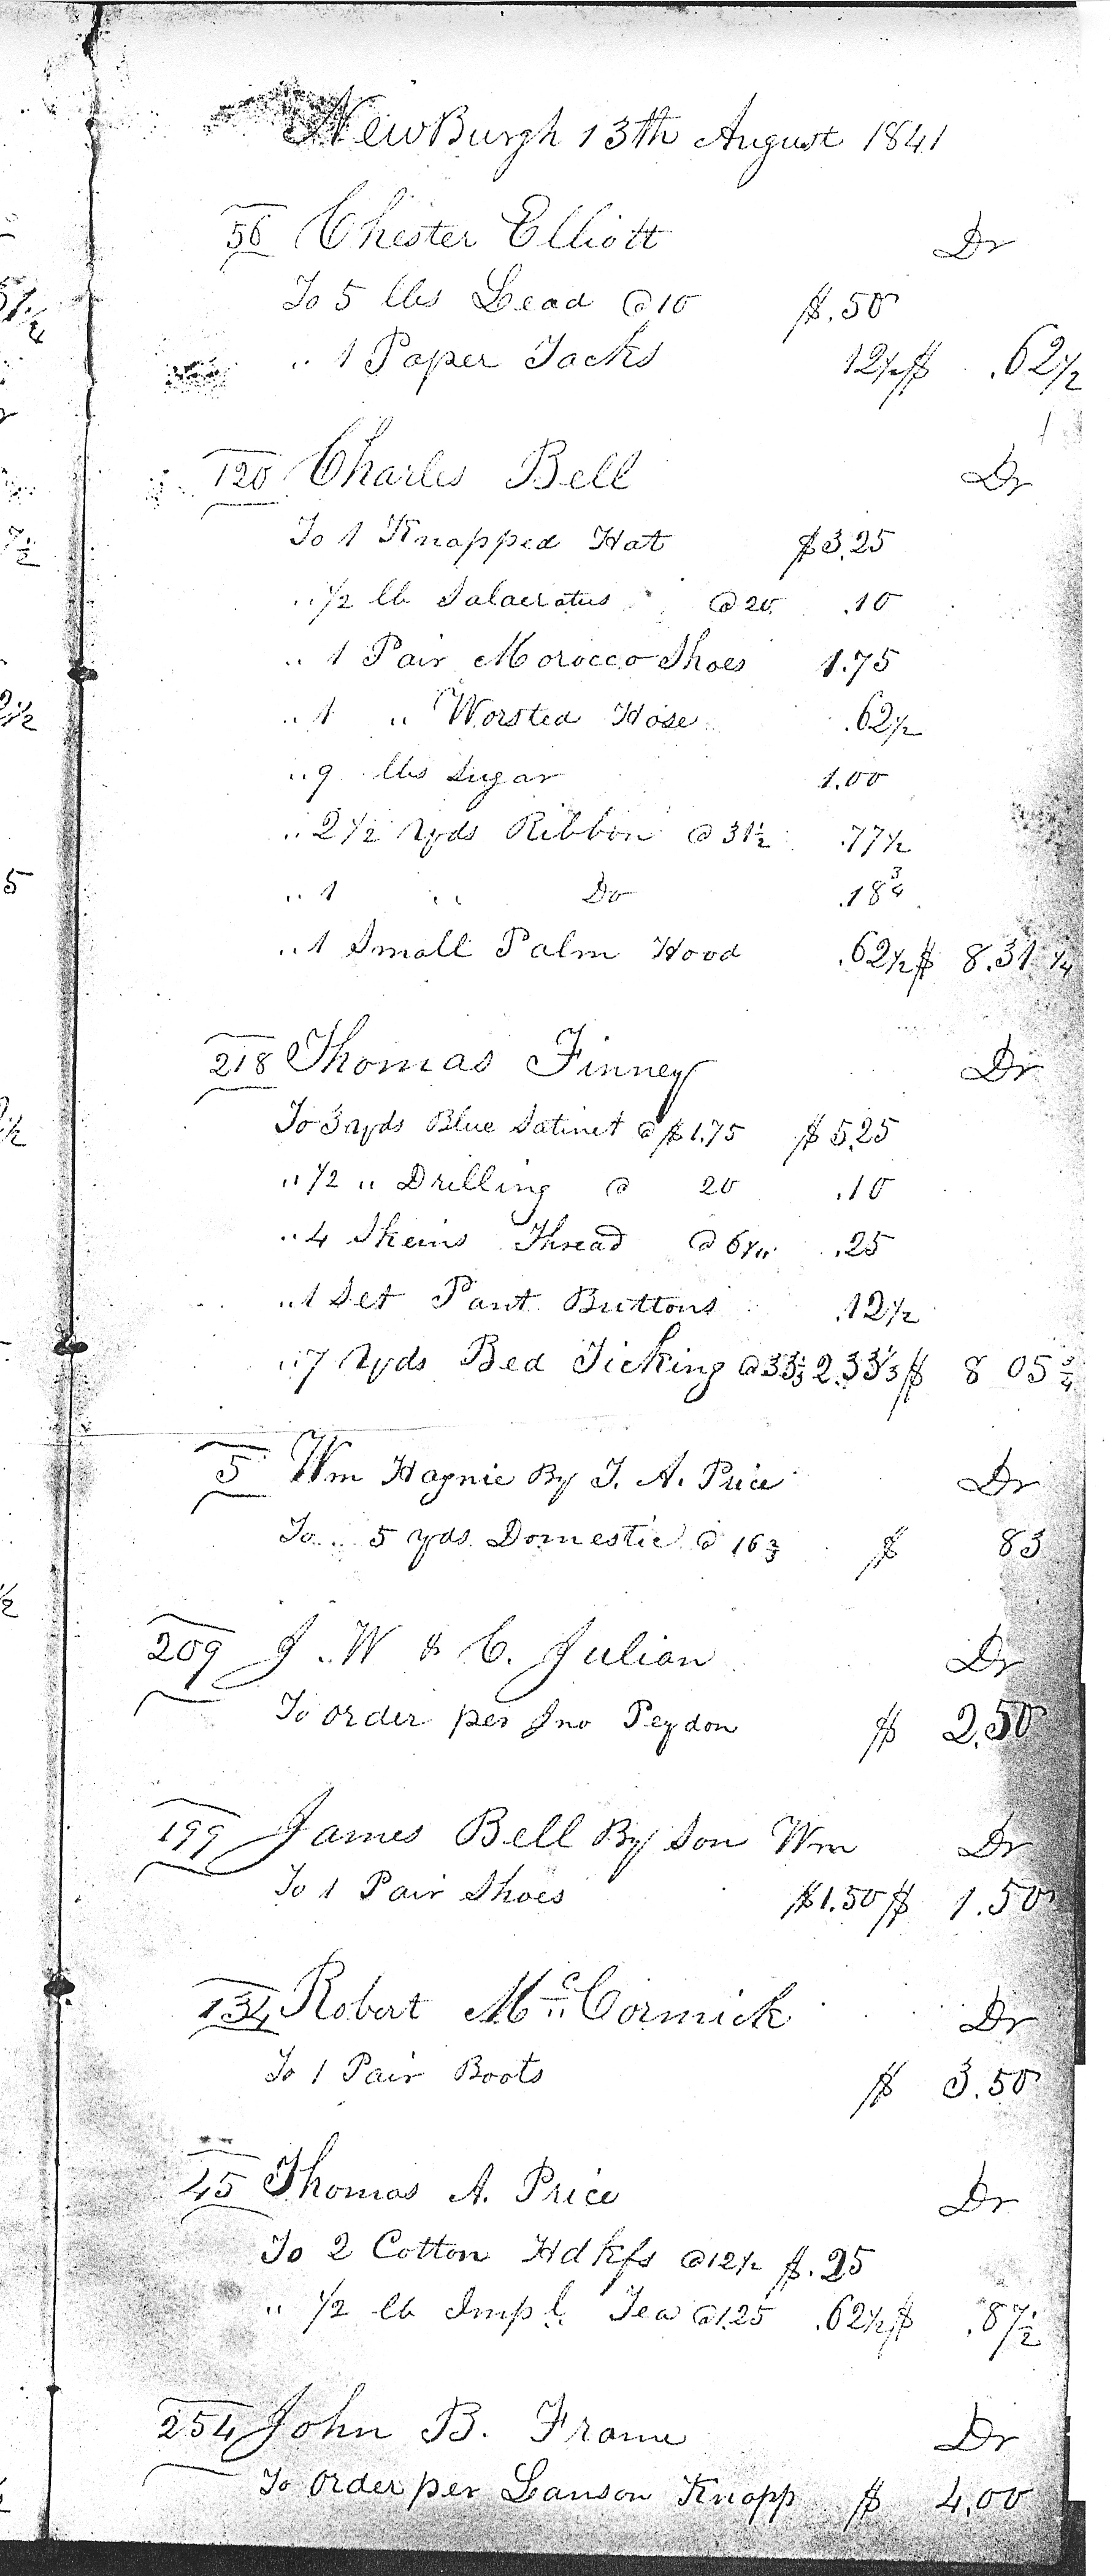 NewBurgh 13th August 1841
56 Chester Elliott Dr
To 5 lbs Lead @ 10 $.50
" 1 Paper Tacks 12½ $ .62½
120 Charles Bell Dr
To 1 Knapped Hat $3.25
" ½ lb Salaeratus @ 20 .10
" 1 Pair Morocco Shoes 1.75
" 1 " Worsted Hose .62½
" 9 lbs Sugar 1.00
" 2½ yds Ribbon @ 31½ .77½
" 1 " Do .18¾
" 1 Small Palm Hood .62½ $ 8.31 ¼
218 Thomas Finney Dr
To 3 yds Blue Satinet @ $1.75 $ 5.25
" ½ " Drilling @ 20 .10
" 4 Skeins Thread @ 6¼ .25
" 1 Set Pant Buttons .12½
" 7 yds Bed Ticking @ 33⅓ 2.33⅓ $ 8 05 ¾
5 Wm Hagnie By T. A. Price Dr
To " 5 yds Domestic @ 16⅔ $ 83
209 J. W & C. Julian Dr
To order per Jno Peydon $ 2.50
199 James Bell By Son Wm Dr
To 1 Pair Shoes $1.50 $ 1.50
134 Robert McCormick Dr
To 1 Pair Boots $ 3.50
45 Thomas A. Price Dr
To 2 Cotton Hdkfs @ 12½ $.25
" ½ lb Impl. Tea @ 1.25 .62½ $ .87½
254 John B. Frame Dr
To Order per Lanson Knapp $ 4.00